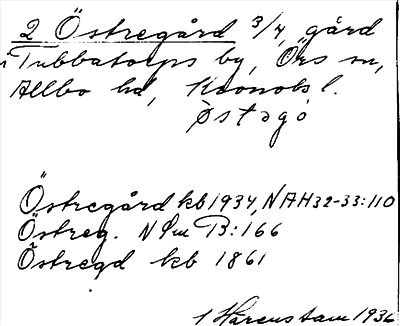 2 Östregård 3/4, gård
i Tubbatorps by, Örs sn,
Allbo hd, Kronobs l.
Östregård kb 1934, NAH 32-33:110
Östreg. N Sm B:166
Östregd kb 1861
1936